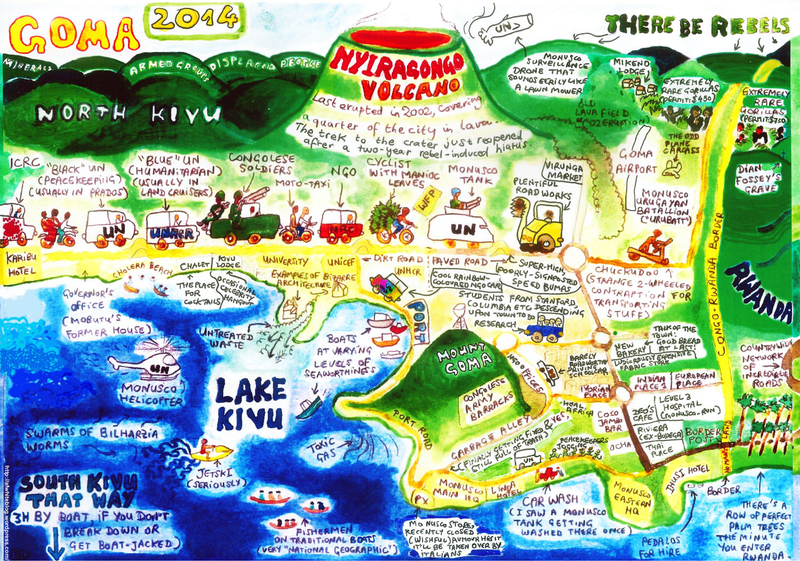 GOMA
2014
UN
THERE BE REBELS
MINERALS
ARMED GROUPS
DISPLACED PEOPLE
NORTH KIVU
NYIRAGONGO
VOLCANO
Last erupted in 2002, covering
a quarter of the city in lava.
The trek to the crater just reopened
after a two-year rebel-induced hiatus.
MONUSCO
SURVEILLANCE
DRONE THAT
SOUNDS EERILY LIKE
A LAWN MOWER
MIKENO
LODGE
EXTREMELY
RARE GORILLAS
(PERMIT: $450)
EXTREMELY
RARE
GORILLAS
(PERMIT: $750)
OLD
LAVA FIELD
THE ODD
PLANE
CARCASS
GOMA
AIRPORT
DIAN
FOSSEY'S
GRAVE
ICRC
"BLACK" UN
(PEACEKEEPING)
(USUALLY IN PRADOS)
"BLUE" UN
(HUMANITARIAN)
(USUALLY IN
LAND CRUISERS)
CONGOLESE
SOLDIERS
MOTO-TAXI
NGO
CYCLIST
WITH MANIOC
LEAVES
WFP
MONUSCO
TANK
PLENTIFUL
ROADWORKS
VIRUNGA
MARKET
MONUSCO
URUGAYAN
BATALLION
("URUBATT")
UN
UNHCR
UN
KARIBU
HOTEL
CHOLERA BEACH
CHALET
THE PLACE
FOR
COCKTAILS
KIVU
LODGE
OCCASIONAL
CELEBRITY
HANGOUT
UNIVERSITY
EXAMPLES OF BIZARRE
ARCHITECTURE
UNICEF
DIRT ROAD
UNHCR
PAVED ROAD
COOL RAINBOW-
COLOURED NGO CAR
SUPER-HIGH,
POORLY-SIGNALED
SPEED BUMPS
CHUCKUDOO
(STRANGE 2-WHEELED
CONTRAPTION FOR
TRANSPORTING
STUFF)
CONGO-RWANDA BORDER
RWANDA
GOVERNOR'S
OFFICE
(MOBUTU'S
FORMER HOUSE)
UNTREATED
WASTE
BOATS
AT VARYING
LEVELS OF
SEAWORTHINESS
PORT
STUDENTS FROM STANFORD,
COLUMBIA ETC DESCENDING
UPON TOWN TO DO
RESEARCH
UN
MONUSCO
HELICOPTER
LAKE
KIVU
MOUNT
GOMA
CONGOLESE
ARMY
BARRACKS
NEW
BAKERY!
TALK OF THE
TOWN:
GOOD BREAD
AT LAST!
COUNTRYWIDE
NETWORK
OF
INCREDIBLE
ROADS
INDIAN
PLACES
EUROPEAN
PLACE
IVORIAN
PLACE
COCO
JAMBO
BAR
LEVEL 3
HOSPITAL
(MONUSCO-RUN)
RIVIERA
(EX-BODEGA)
THAI
PLACE
BORDER
POST
OCHA
SWARMS OF BILHARZIA
WORMS
TOXIC
GAS
PORT ROAD
GARBAGE ALLEY
(FINALLY GETTING FIXED, YET
STILL FULL OF TRASH)
PEACEKEEPERS
JOGGING
UN
JETSKI
(SERIOUSLY)
SOUTH KIVU
THAT WAY
3H BY BOAT, IF YOU DON'T
BREAK DOWN OR
GET BOAT-JACKED)
FISHERMEN
ON TRADITIONAL BOATS
(VERY "NATIONAL GEOGRAPHIC")
PX
MONUSCO
MAIN HQ
LINDA
HOTEL
MONUSCO STORES,
RECENTLY CLOSED
(WISHFUL) RUMOUR HAS IT
IT'LL BE TAKEN OVER BY
ITALIANS
CAR WASH
(I SAW A MONUSCO
TANK GETTING
WASHED THERE ONCE)
MONUSCO
EASTERN
HQ
IHUSI HOTEL
BORDER
PEDALOS
FOR HIRE
THERE'S
A ROW OF PERFECT
PALM TREES
THE MINUTE
YOU ENTER
RWANDA.